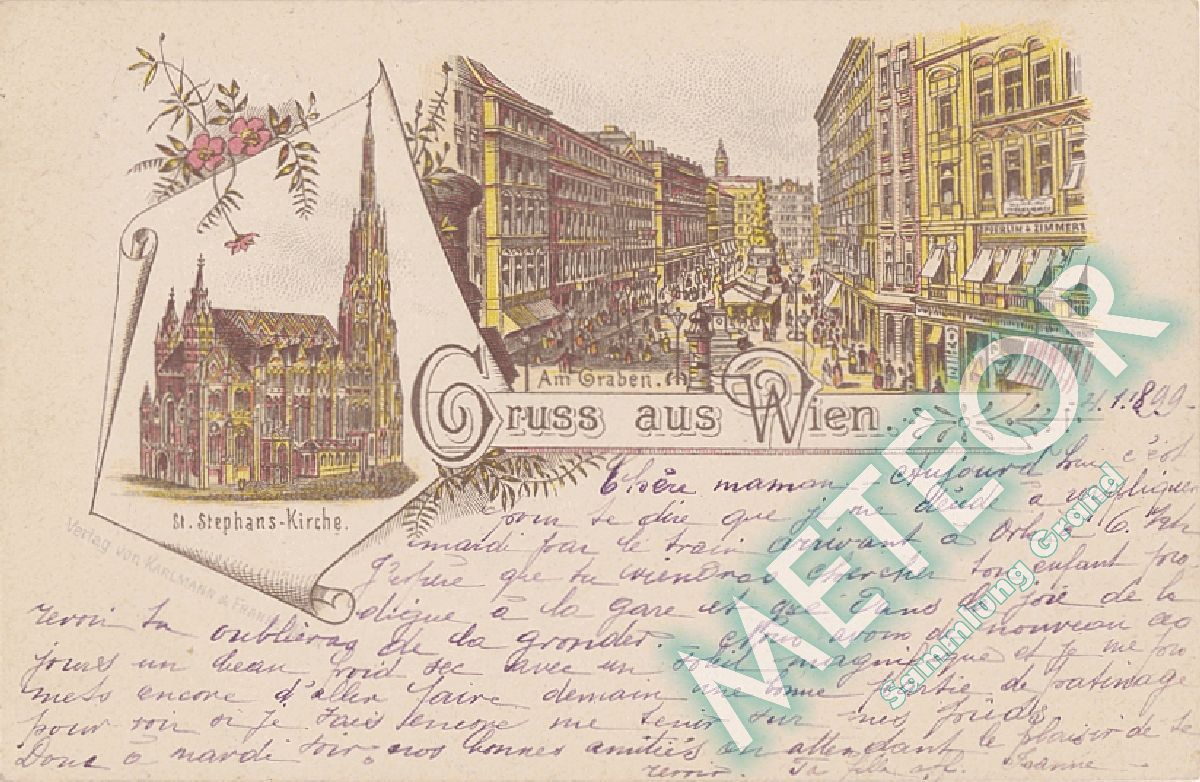 BERLIN & ZIMMER
Am Graben.
Gruss aus Wien.
St. Stephans-Kirche.
Verlag von KARLMANN & FRANK
METEOR
Sammlung Grand
1.1899
Chère maman Aujourd'hui c'est
pour te dire que je me à
mardi par le train arrivant à 6.
J'espère que tu viendras chercher ton enfant pro
digue à la gare et que dans la joie de la
revoir tu oublieras de la gronder. Nous avons de nouveau ces
jours un beau froid sec avec un soleil magnifique et je me pro
mets encore d'aller faire demain une bonne partie de patinage
pour voir si je sais encore me tenir sur mes pieds
Donc à mardi soir nos bonnes amitiés en attendant le plaisir de te
revoir. Ta fille aff. Jeanne